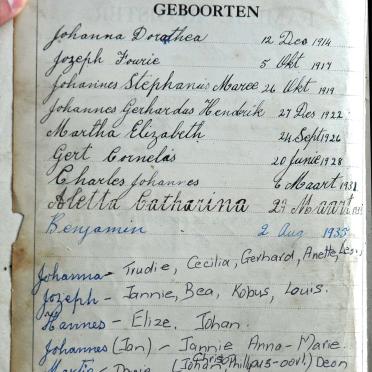 GEBOORTEN
Johanna Dorothea 12 Des 1914
Jozeph Fourie 5 Okt 1917
Johannes Stephanus Maree 26 Okt 1919
Johannes Gerhardus Hendrik 27 Des 1922
Martha Elizabeth 24 Sept 1926
Gert Cornelis 20 Junie 1928
Charles Johannes 6 Maart 1931
Aletta Catharina 29 Maart
Benjamin 2 Aug 1935
Johanna - Trudie, Cecilia, Gerhard, Anette, Les
Jozeph - Jannie, Bea, Kobus, Louis.
Hannes - Elize. Johan.
Johannes (Jan) - Jannie Anna-Marie.
Chris
(Johan Phillpus-oorl.) Deon